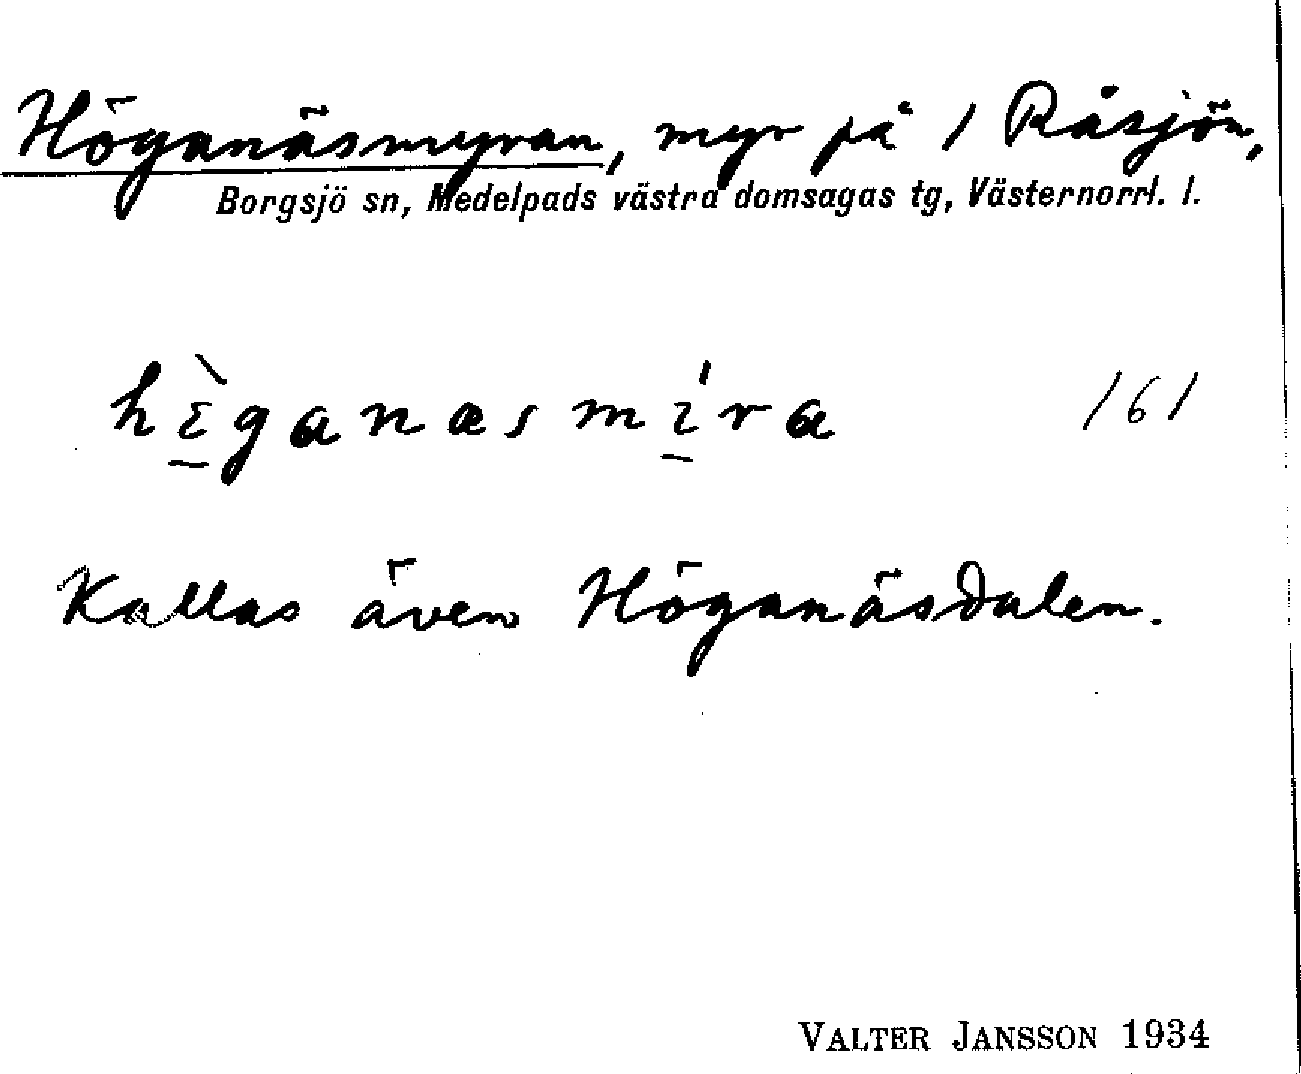 Höganäsmyran, myr på 1 Råsjön,
Borgsjö sn, Medelpads västra domsagas tg, Västernorrl. l.
hɪ̠̀ganæsmí̠ra 161
Kallas även Höganäsdalen.
VALTER JANSSON 1934